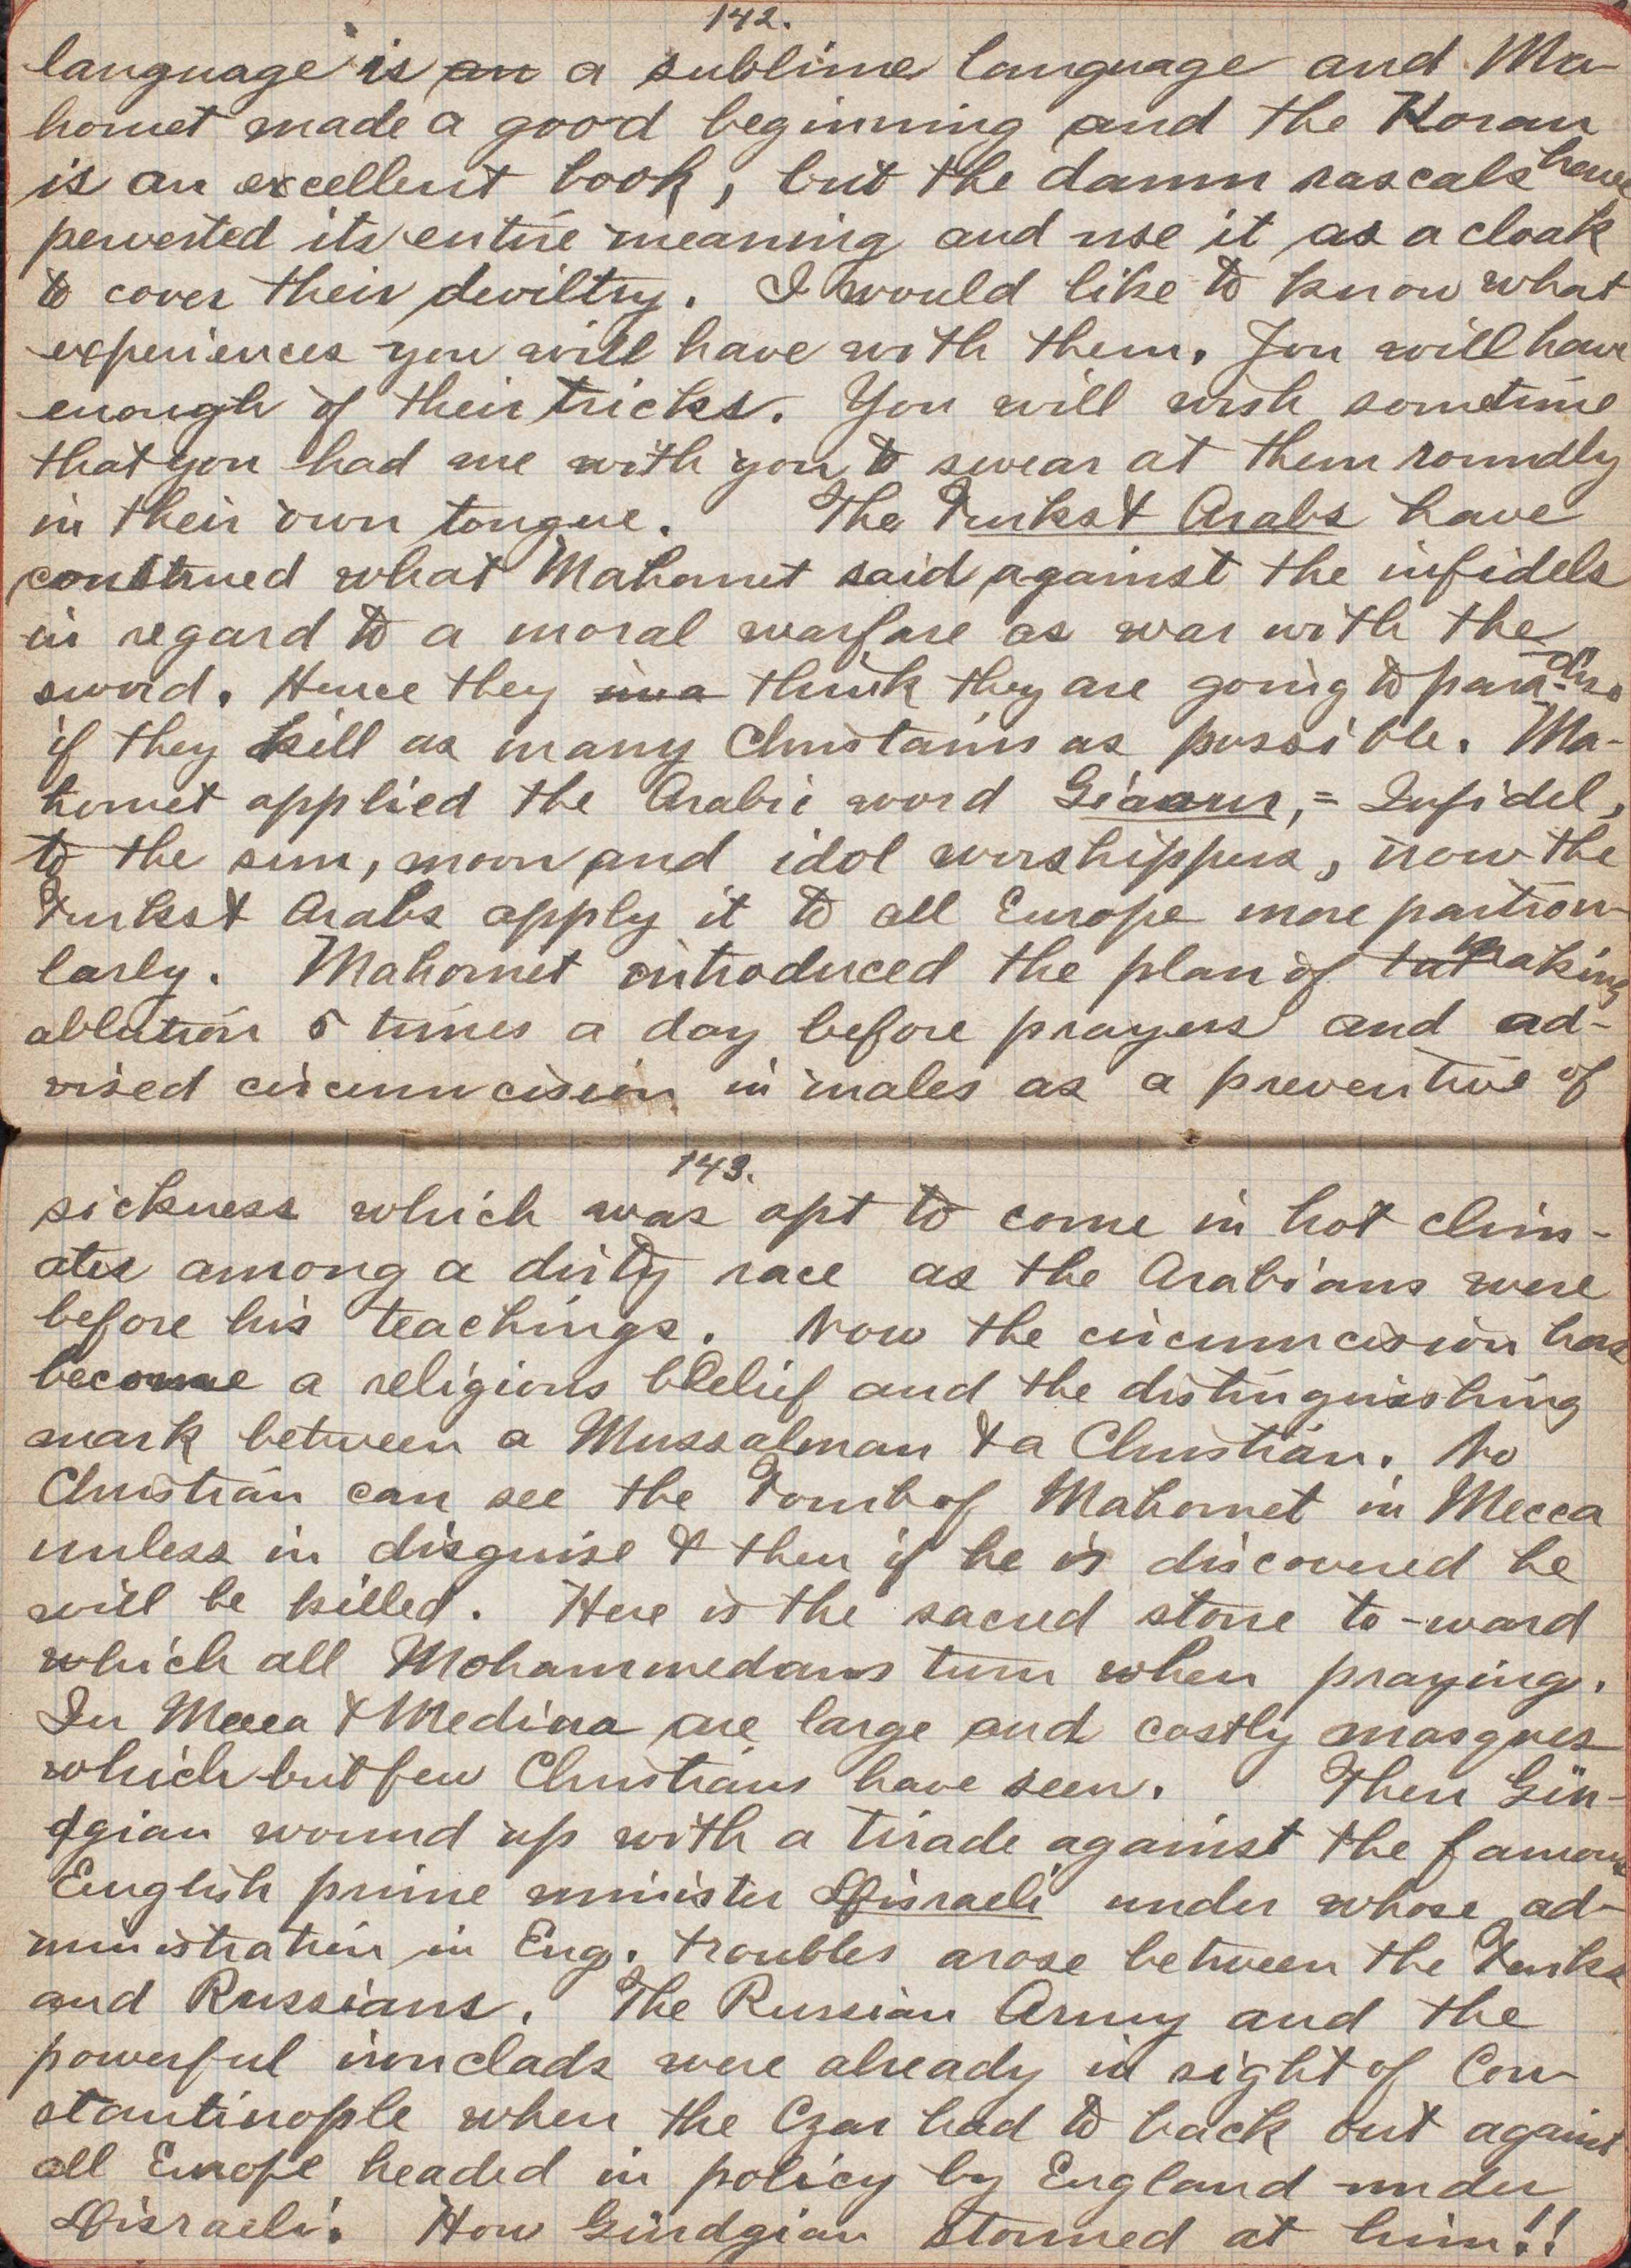 142.
language is an a sublime language and Ma-
homet made a good beginning and the Koran
is an excellent book, but the damn rascals have
perverted its entire meaning and use it as a cloak
to cover their deviltry. I would like to know what
experiences you will have with them. You will have
enough of their tricks. You will wish sometime
that you had me with you to swear at them roundly
in their own tongue. The Turks & Arabs have
construed what Mahomet said against the infidels
in regard to a moral warfare as war with the
sword. Hence they think they are going to paradise
if they kill as many Christains as possible. Ma-
homet applied the Arabic word Giaour, = Infidel,
to the sun, moon and idol worshippers, now the
Turks & Arabs apply it to all Europe more particu-
larly. Mahomet introduced the plan of making
ablution 5 times a day before prayers and ad-
vised circumcision in males as a preventive of
143.
sickness which was apt to come in hot clim-
ates among a dirty race as the Arabians were
before his teachings. Now the circumcision has
become a religious belief and the distinguishing
mark between a Mussalman & a Christian. No
Christian can see the Tomb of Mahomet in Mecca
unless in disguise & then if he is discovered he
will be killed. Here is the sacred stone to-ward
which all Mohammedans turn when praying.
In Mecca & Medina are large and costly masques
which but few Christians have seen. Then Gün-
dgian wound up with a tirade against the famous
English prime minister Disraeli under whose ad-
ministration in Eng. troubles arose between the Turks
and Russians. The Russian Army and the
powerful ironclads were already in sight of Con-
stantinople when the Czar had to back out against
all Europe headed in policy by England under
Disraeli. How Gündgian stormed at him!!